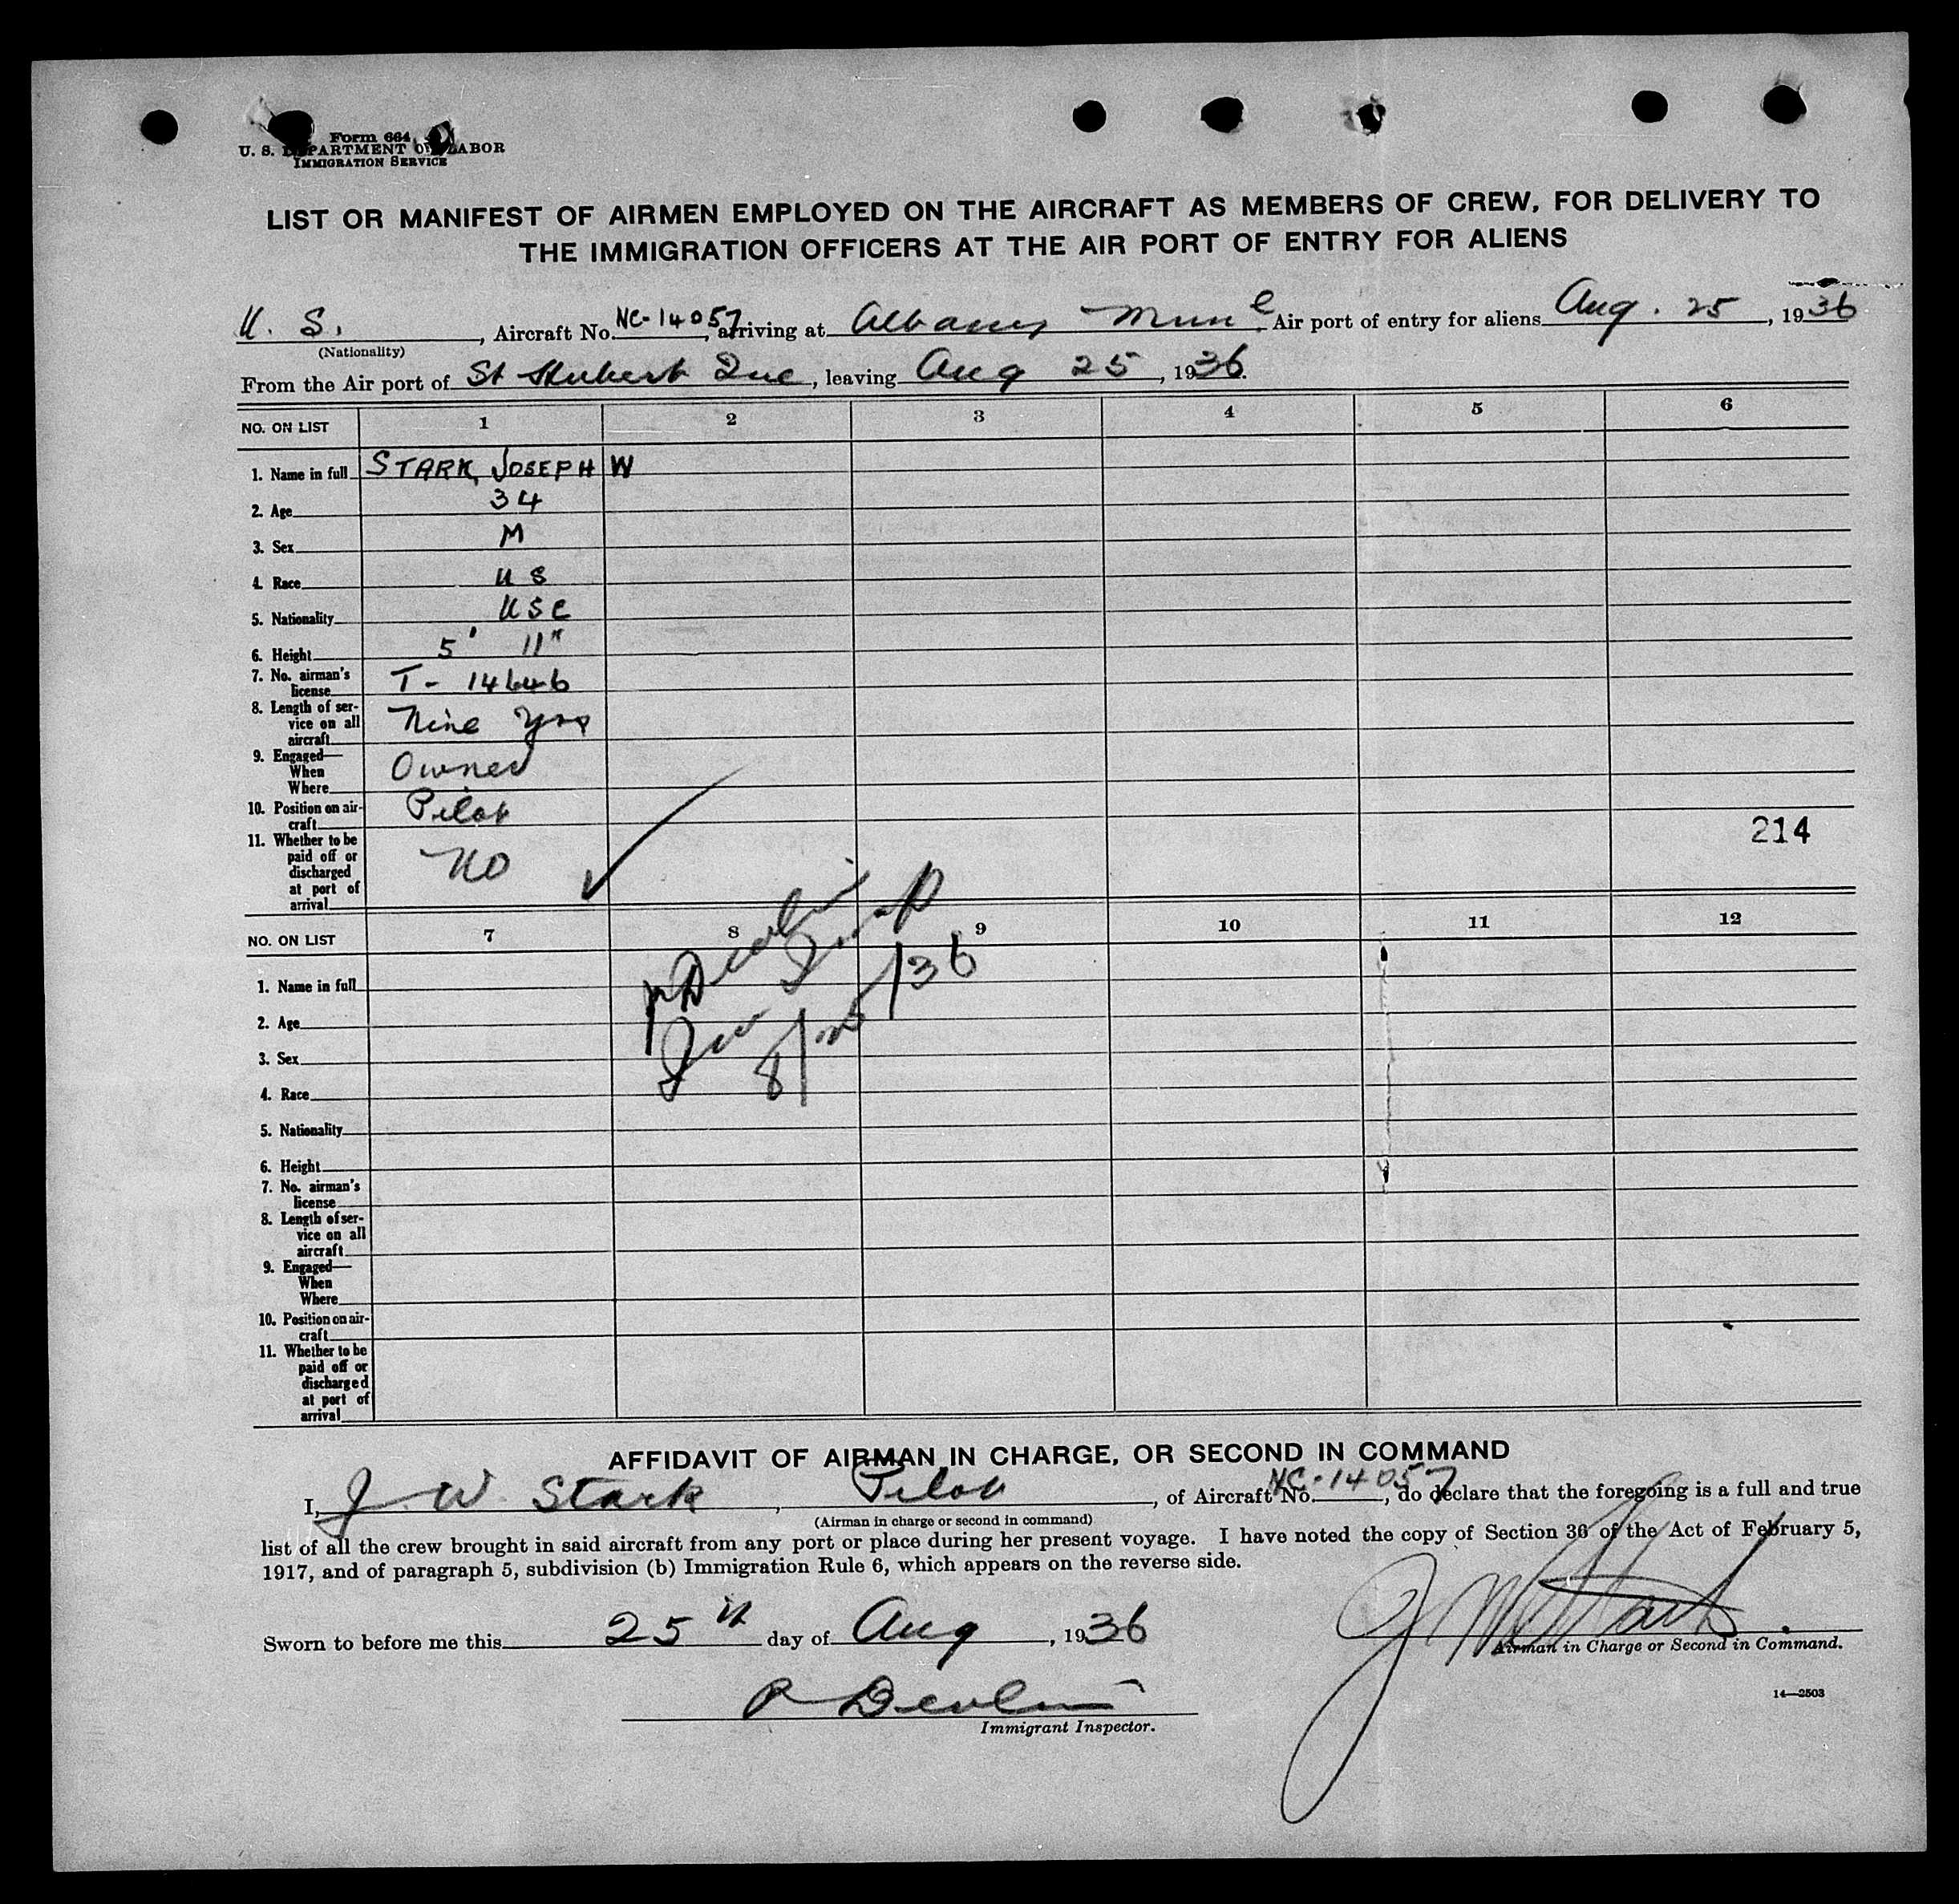 Form 664
U. S. DEPARTMENT OF LABOR
IMMIGRATION SERVICE
LIST OR MANIFEST OF AIRMEN EMPLOYED ON THE AIRCRAFT AS MEMBERS OF CREW, FOR DELIVERY TO
THE IMMIGRATION OFFICERS AT THE AIR PORT OF ENTRY FOR ALIENS
U. S., Aircraft No. NC-14057, arriving at Albany Mun Air port of entry for aliens Aug. 25, 1936
(Nationality)
From the Air port of St Hubert Que, leaving Aug 25, 1936.
NO. ON LIST 1 2 3 4 5 6
1. Name in full STARK, JOSEPH W
2. Age 34
3. Sex M
4. Race U S
5. Nationality USC
6. Height 5' 11"
7. No. airman's
license T- 14646
8. Length of ser-
vice on all
aircraft Nine Yrs
9. Engaged—
When
Where Owner
10. Position on air-
craft Pilot
11. Whether to be
paid off or
discharged
at port of
arrival No
214
NO. ON LIST 7 8 9 10 11 12
P Devlin
Imm Insp
8/25/36
1. Name in full
2. Age
3. Sex
4. Race
5. Nationality
6. Height
7. No. airman's
license
8. Length of ser-
vice on all
aircraft
9. Engaged—
When
Where
10. Position on air-
craft
11. Whether to be
paid off or
discharged
at port of
arrival
AFFIDAVIT OF AIRMAN IN CHARGE, OR SECOND IN COMMAND
I, J. W. Stark, Pilot, of Aircraft No. NC-14057, do declare that the foregoing is a full and true
(Airman in charge or second in command)
list of all the crew brought in said aircraft from any port or place during her present voyage. I have noted the copy of Section 36 of the Act of February 5,
1917, and of paragraph 5, subdivision (b) Immigration Rule 6, which appears on the reverse side.
Sworn to before me this 25th day of Aug, 1936
J W Stark
Airman in Charge or Second in Command.
P Devlin
Immigrant Inspector.
14—2503